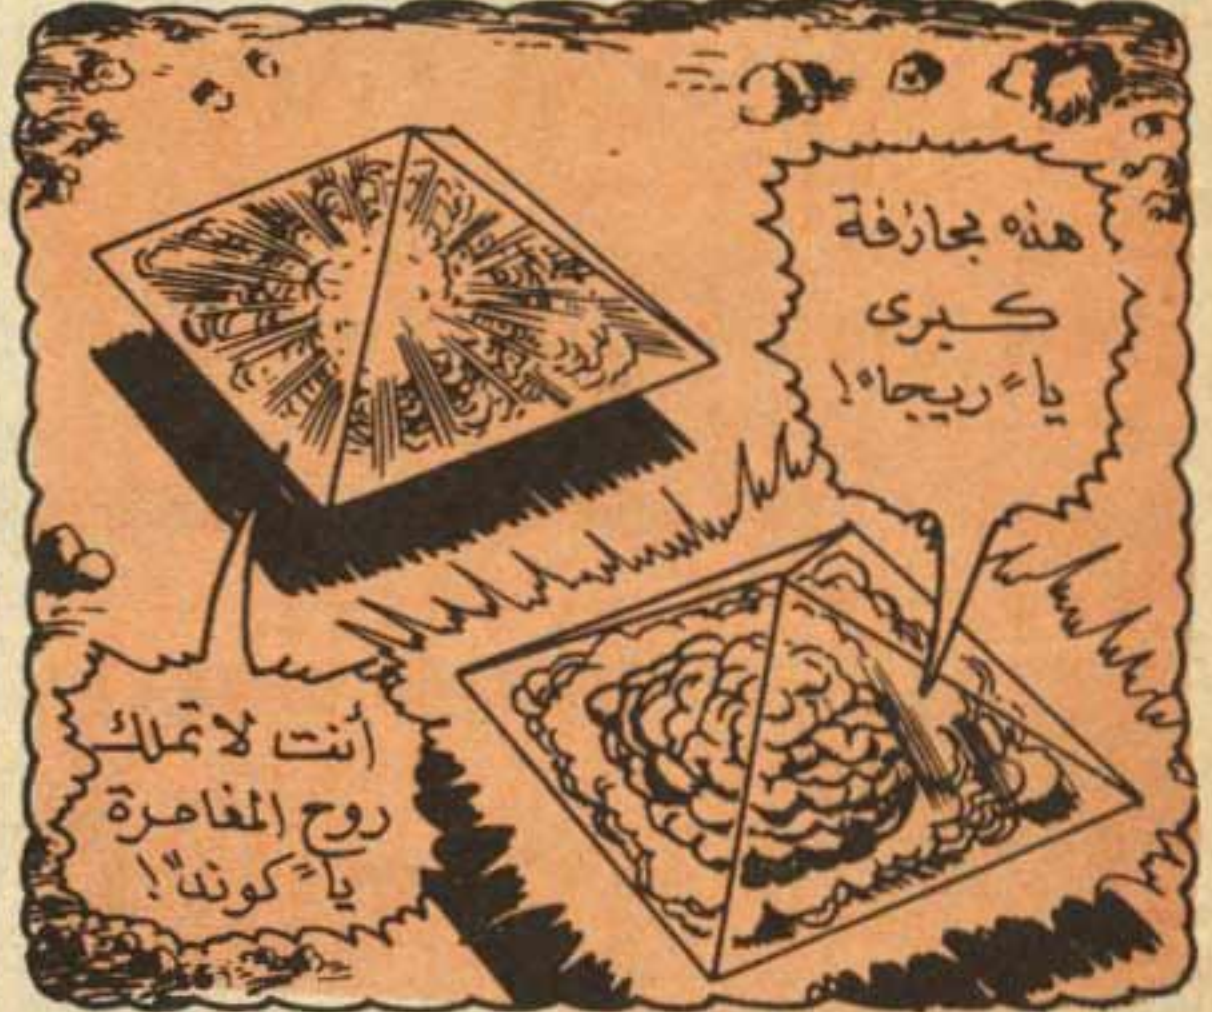 هذه مجازفة
كبرى
يا "ريجا"!
أنت لا تملك
روح المغامرة
يا "كوندا"!